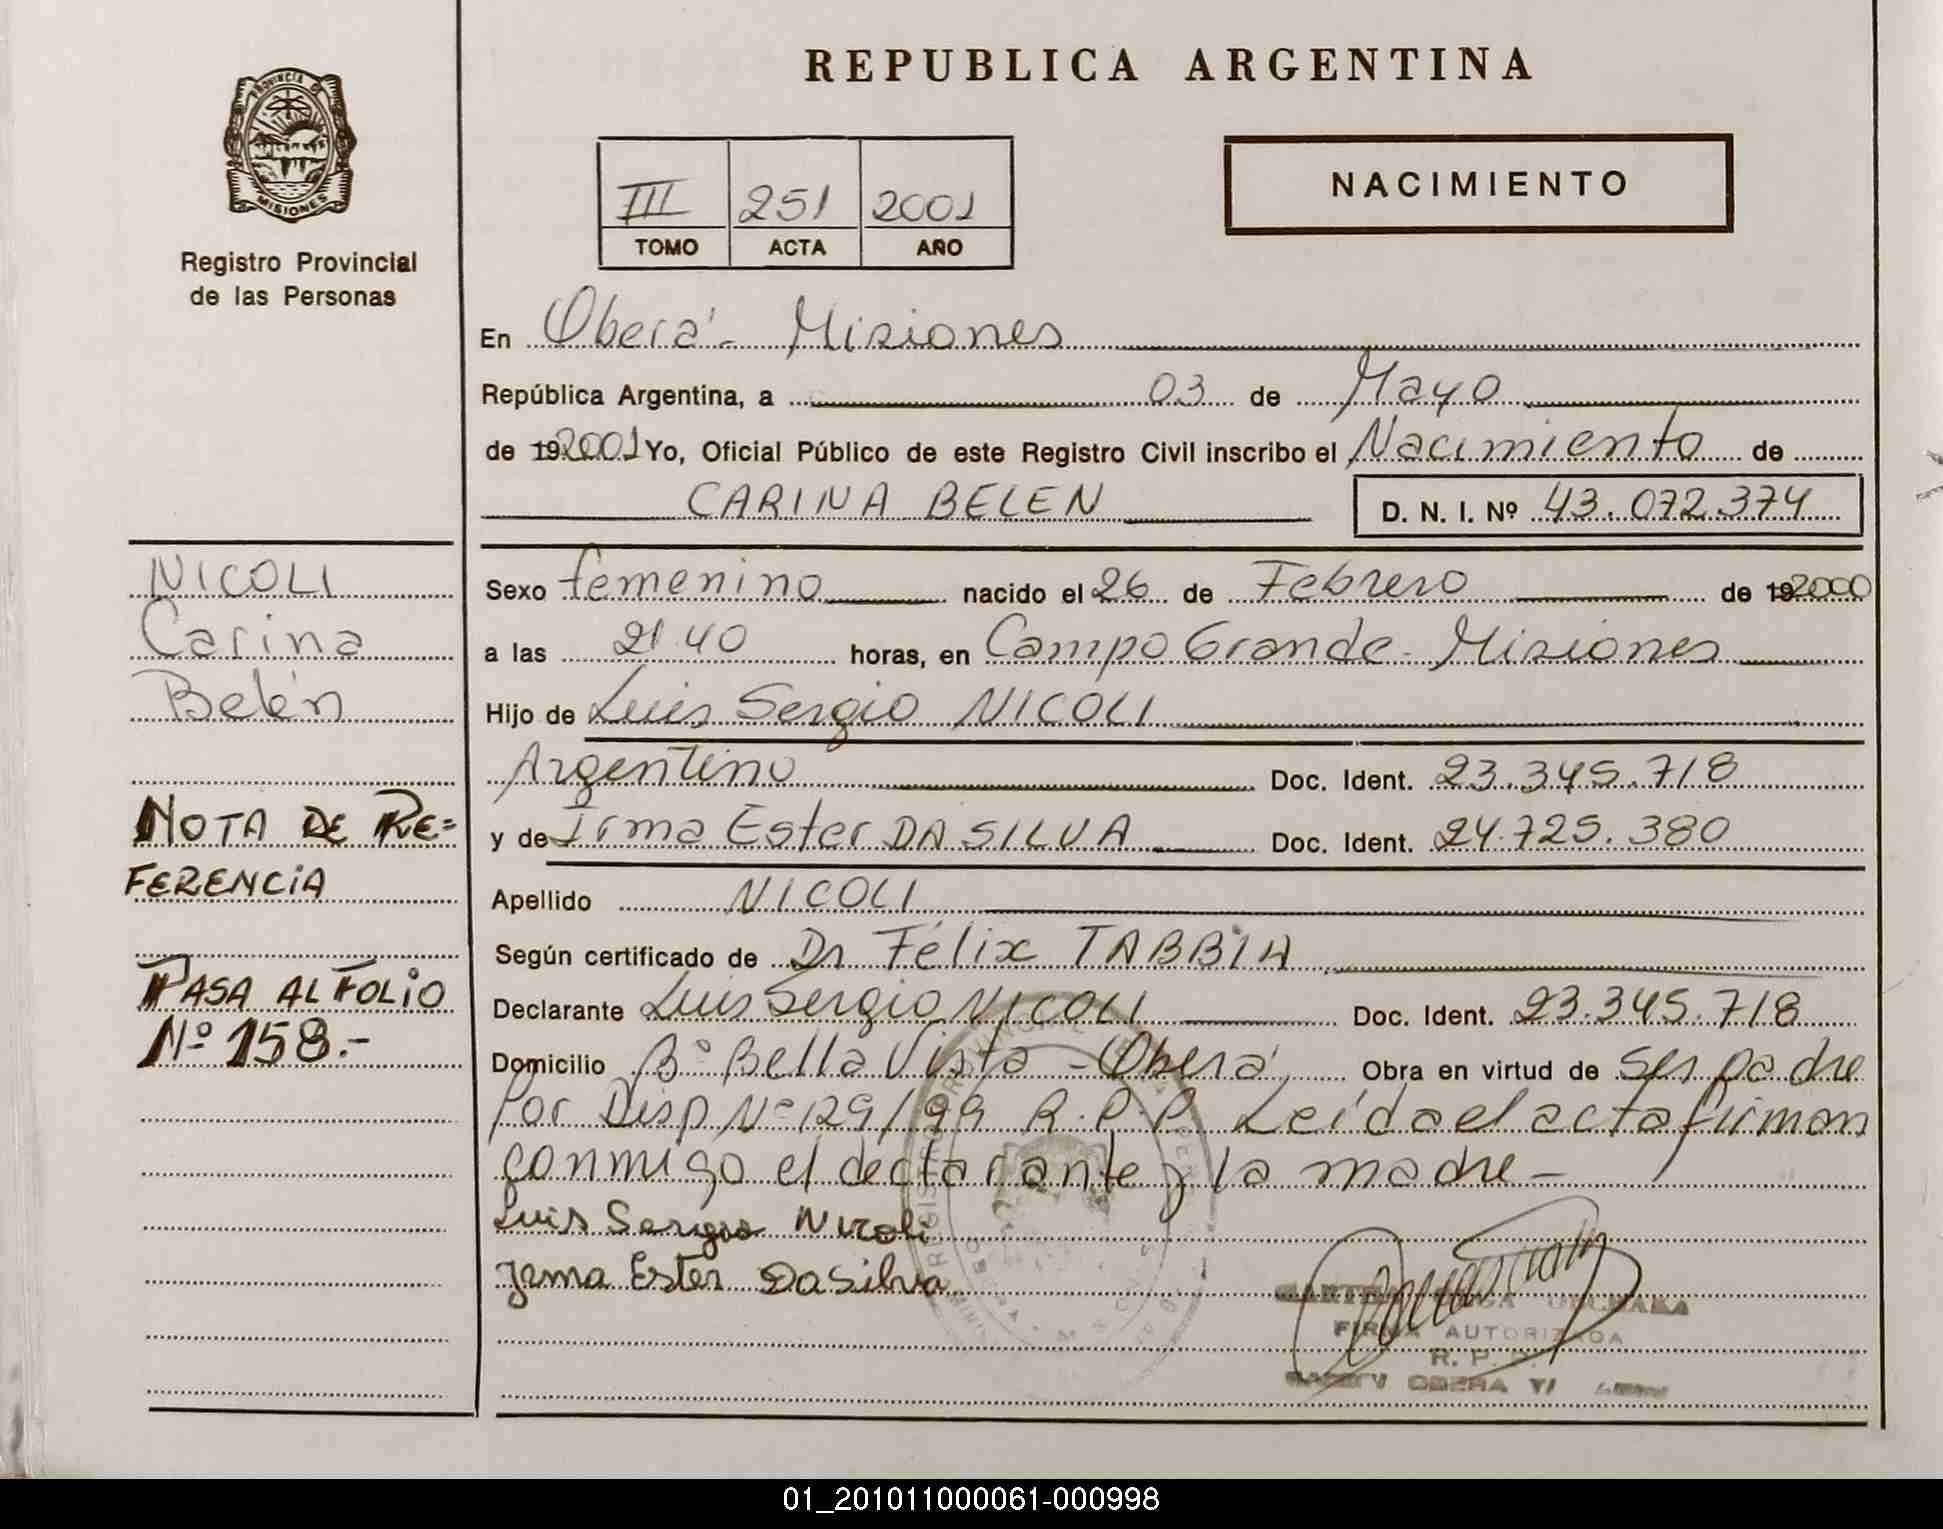 REPUBLICA ARGENTINA
PROVINCIA DE
MISIONES
Registro Provincial
de las Personas
III 251 2001
TOMO ACTA AÑO
NACIMIENTO
En Oberá - Misiones
República Argentina, a 03 de Mayo
de 19 2001 Yo, Oficial Público de este Registro Civil inscribo el Nacimiento de
CARINA BELEN D. N. I. Nº 43.072.374
NICOLI
Carina
Belén
NOTA DE RE=
FERENCIA
PASA AL FOLIO
Nº 158.-
Sexo femenino nacido el 26 de Febrero de 19 2000
a las 21 40 horas, en Campo Grande - Misiones
Hijo de Luis Sergio NICOLI
Argentino Doc. Ident. 23.345.718
y de Irma Ester DA SILVA Doc. Ident. 24.725.380
Apellido NICOLI
Según certificado de Dr Félix TABBIA
Declarante Luis Sergio NICOLI Doc. Ident. 23.345.718
Domicilio Bº Bella Vista - Oberá Obra en virtud de ser padre
Por Disp Nº 129/99 R.P.P. Leída el acta firman
conmigo el declarante y la madre -
Luis Sergio Nicoli
Irma Ester Da Silva
FIRMA AUTORIZADA
R. P. P.
OBERA
01_201011000061-000998